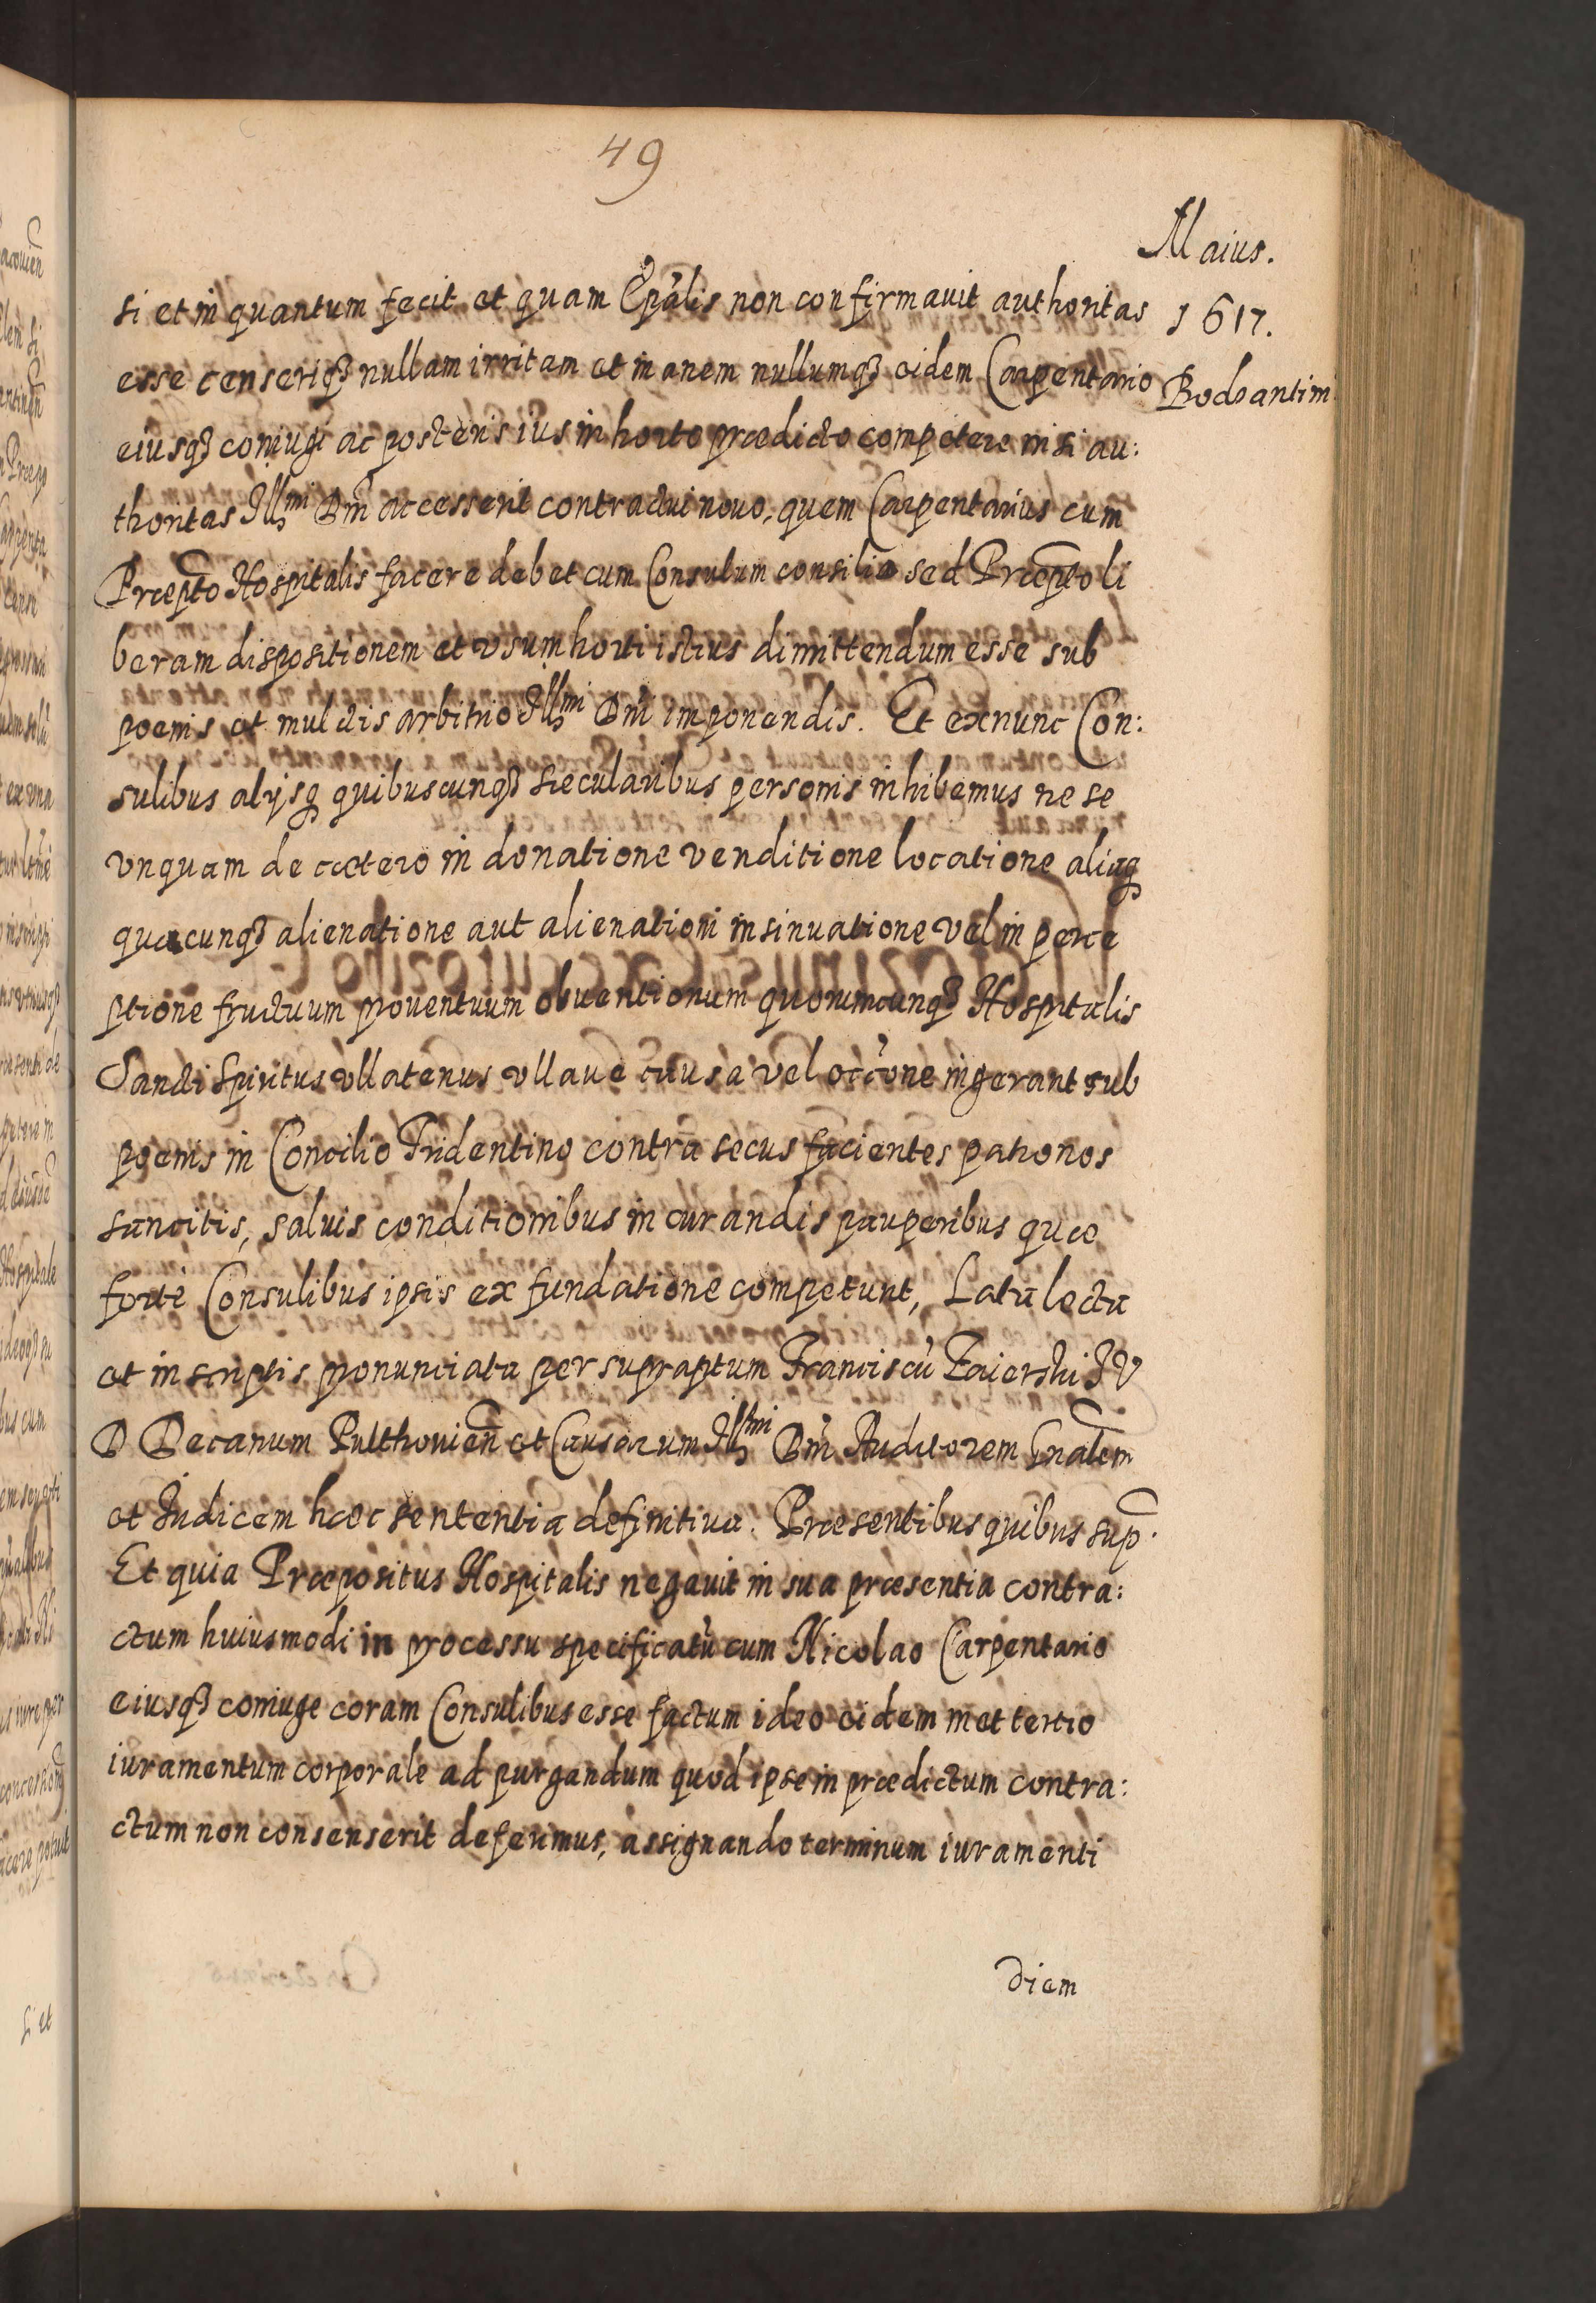 49
Maius.
1617.
Bodzantim
si et in quantum fecit et quam Ep̃alis non confirmauit authoritas
esse censeriq3 nullam irritam et inanem nullumq3 eidem Carpentario
eiusq3 coniugi ac posteris ius in horto prædicto competere nisi au:
thoritas Illmi Dni accesserit contractui nouo, quem Carpentarius cum
Præpto Hospitalis facere debet cum Consulum consilio sed Præpto li
beram dispositionem et vsum horti istius dimittendum esse sub
poenis et mulctis arbitrio Illmi Dni imponendis. Et ex nunc Con:
sulibus alijsq quibuscunq3 sæcularibus personis inhibemus ne se
vnquam de cætero in donatione venditione locatione aliaq
quacunq3 alienatione aut alienationi insinuatione vel in perce
ptione fructuum prouentuum obuentionum quorumcunq3 Hospitalis
Sancti Spiritus vllatenus vllaue causa vel occōne ingerant sub
poenis in Concilio Tridentino contra secus facientes patronos
sancitis, saluis conditionibus in curandis pauperibus quæ
fortè Consulibus ipsis ex fundatione competunt, Lata lecta
et in scriptis pronunciata per supraptum Franciscũ Zaierski IV
D Decanum Pulthouieñ et Causarum Illmi Dni Auditorem Gnalem
et Iudicem hæc sententia definitiua. Præsentibus quibus sup.
Et quia Præpositus Hospitalis negauit in sua præsentia contra:
ctum huiusmodi in processu specificatũ cum Nicolao Carpentario
eiusq3 coniuge coram Consulibus esse factum ideo eidem met tertio
iuramentum corporale ad purgandum quod ipse in prædictum contra:
ctum non consenserit deferimus, assignando terminum iuramenti
diem